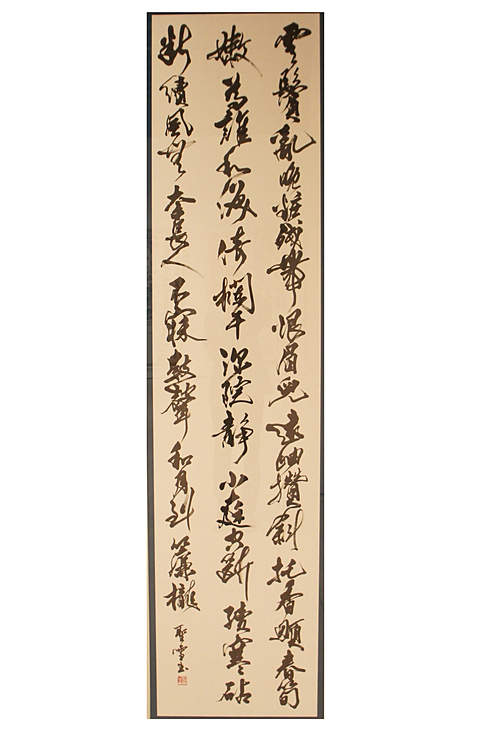 雲鬢亂晚妝殘帶恨眉兒遠岫攢斜托香顋春筍
嫩為誰和淚倚欄干深院靜小庭空斷續寒砧
斷續風無奈長人不寐數聲和月到簾櫳
聖雪書